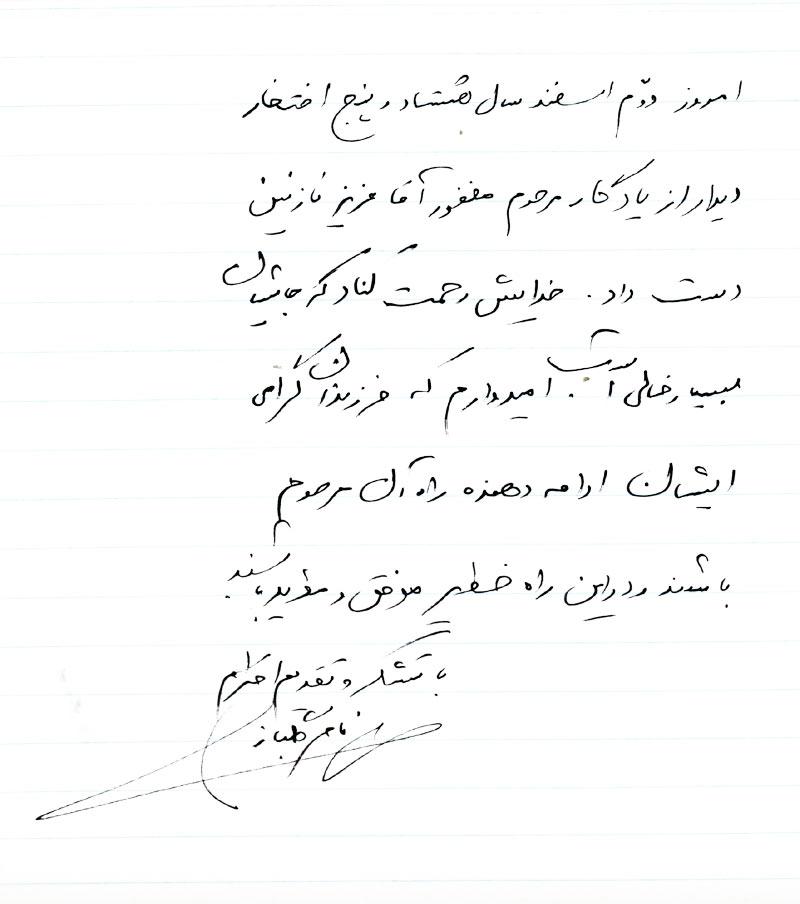 امروز دوّم اسفند سال هشتاد و پنج افتخار
دیدار از یادگار مرحوم مغفور آقا عزیز نازنین
دست داد. خدایش رحمت کناد که جایشان
بسیار خالی است. امیدوارم که فرزندان گرامی
ایشان ادامه دهنده راه آن مرحوم
باشند و در این راه خطیر موفق و مؤید باشند
با تشکر و تقدیم احترام